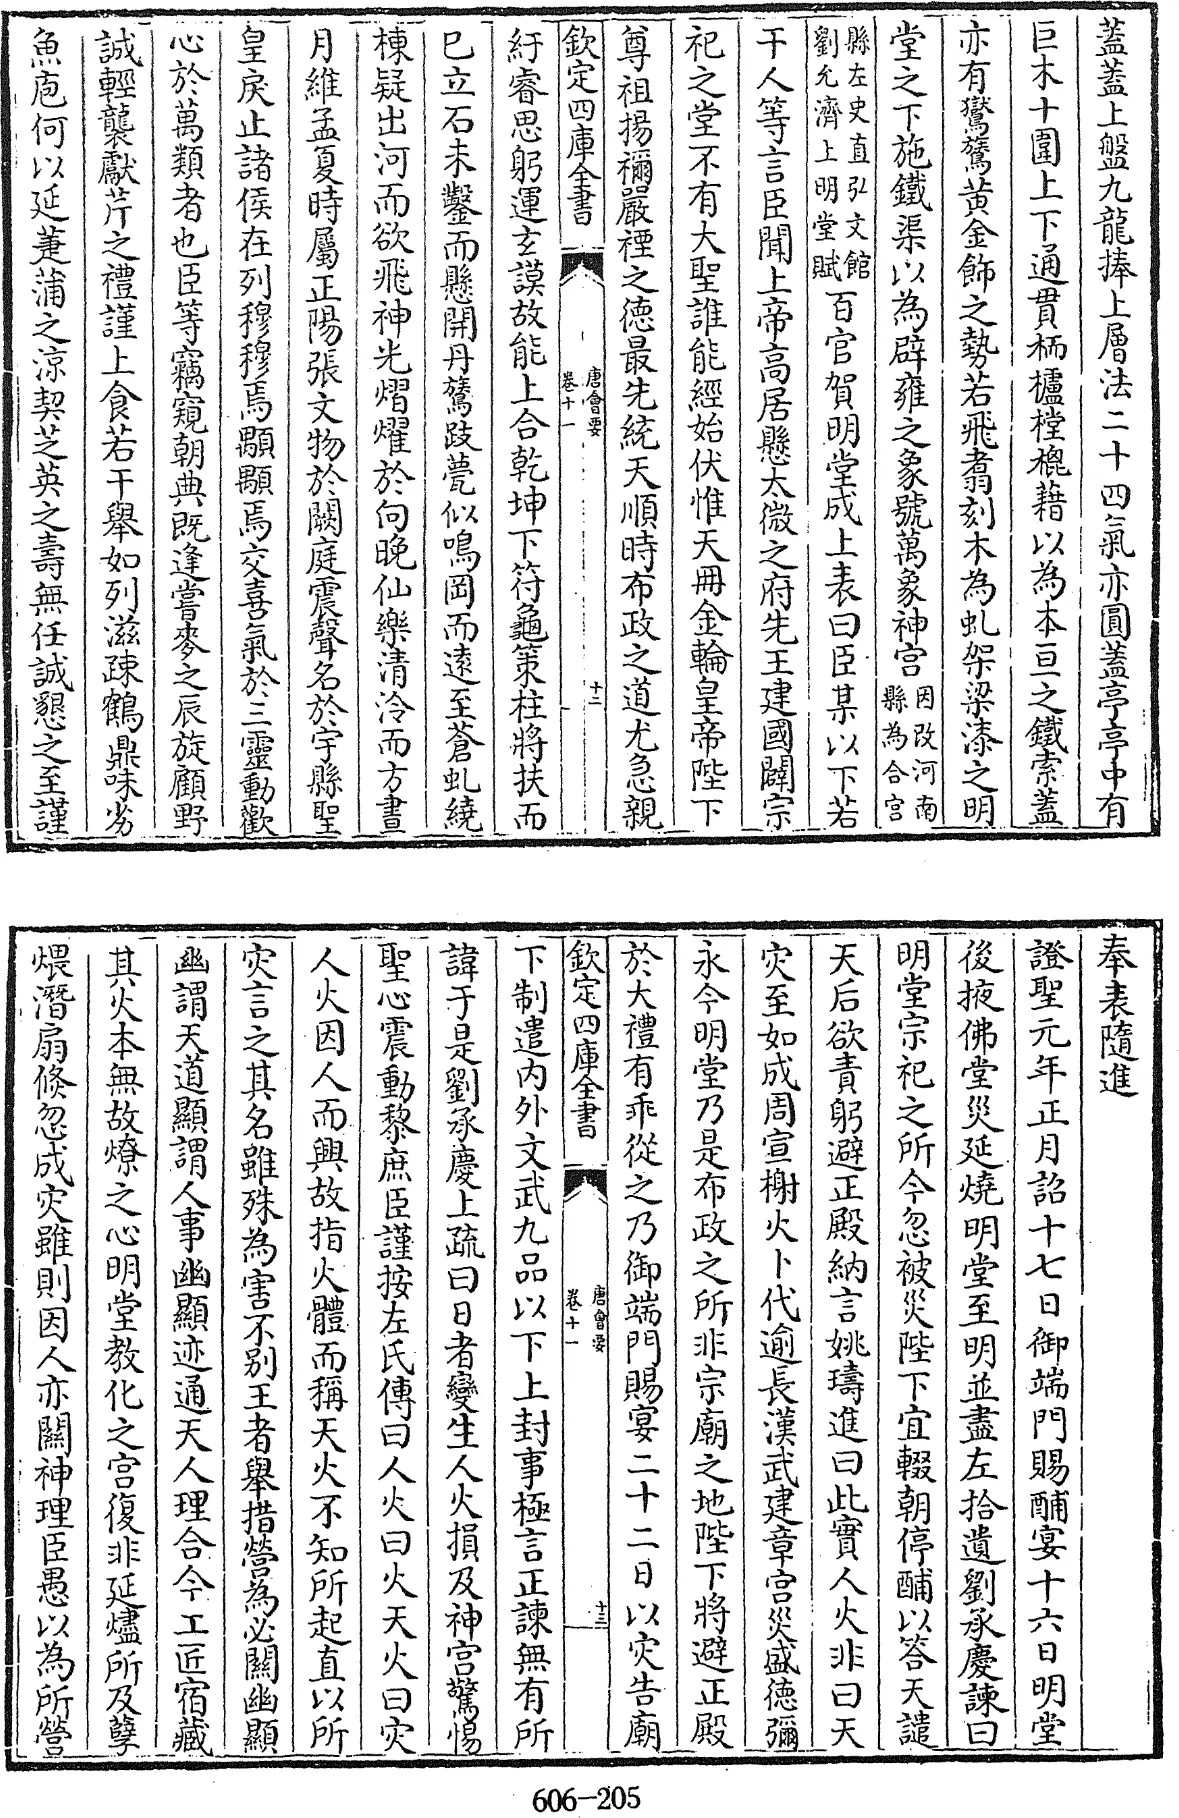 蓋蓋上盤九龍捧上層法二十四氣亦圓蓋亭亭中有
巨木十圍上下通貫栭櫨樘槐藉以為本亘之鐵索蓋
亦有鸑鷟黄金飾之勢若飛翥刻木為虬架梁漆之明
堂之下施鐵渠以為辟雍之象號萬象神宫因改河南縣為合宫
縣左史直弘文館劉允濟上明堂賦百官賀明堂成上表曰臣某以下若
干人等言臣聞上帝高居懸太微之府先王建國闢宗
祀之堂不有大聖誰能經始伏惟天冊金輪皇帝陛下
尊祖揚禰嚴禋之德最先統天順時布政之道尤急親
欽定四庫全書
唐會要
卷十一
十二
紆睿思躬運玄謨故能上合乾坤下符龜策柱將扶而
已立石未鑿而懸開丹鷟跂甍似鳴岡而遠至蒼虬繞
棟疑出河而欲飛神光熠燿於向晚仙樂清泠而方晝
月維孟夏時屬正陽張文物於闕庭震聲名於宇縣聖
皇戾止諸侯在列穆穆焉顒顒焉交喜氣於三靈動歡
心於萬類者也臣等竊窺朝典既逢嘗麥之辰旋顧野
誠輕襲獻芹之禮謹上食若干舉如列滋踈鶴鼎味劣
魚庖何以延萐蒲之涼契芝英之壽無任誠懇之至謹
奉表隨進
證聖元年正月詔十七日御端門賜酺宴十六日明堂
後掖佛堂災延燒明堂至明並盡左拾遺劉承慶諫曰
明堂宗祀之所今忽被災陛下宜輟朝停酺以答天譴
天后欲責躬避正殿納言姚璹進曰此實人火非曰天
灾至如成周宣榭火卜代逾長漢武建章宫災盛德彌
永今明堂乃是布政之所非宗廟之地陛下將避正殿
於大禮有乖從之乃御端門賜宴二十二日以灾告廟
欽定四庫全書
唐會要
卷十一
十三
下制遣内外文武九品以下上封事極言正諫無有所
諱于是劉承慶上疏曰日者變生人火損及神宫驚惕
聖心震動黎庶臣謹按左氏傳曰人火曰火天火曰灾
人火因人而興故指火體而稱天火不知所起直以所
灾言之其名雖殊為害不别王者舉措營為必關幽顯
幽謂天道顯謂人事幽顯迹通天人理合今工匠宿藏
其火本無故燎之心明堂教化之宫復非延燼所及孽
煨潛扇倏忽成灾雖則因人亦關神理臣愚以為所營
606-205